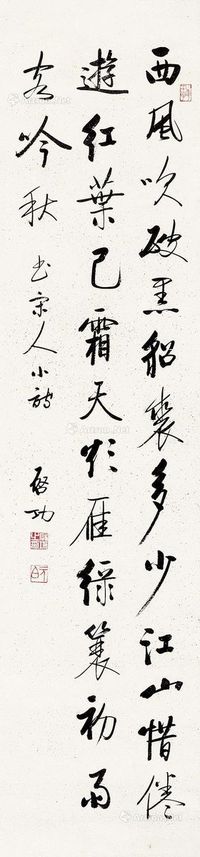 西風吹破黑貂裘多少江山惜倦
遊紅葉已霜天欲雁綠蓑初雨
客吟秋 書宋人小詩 啓功